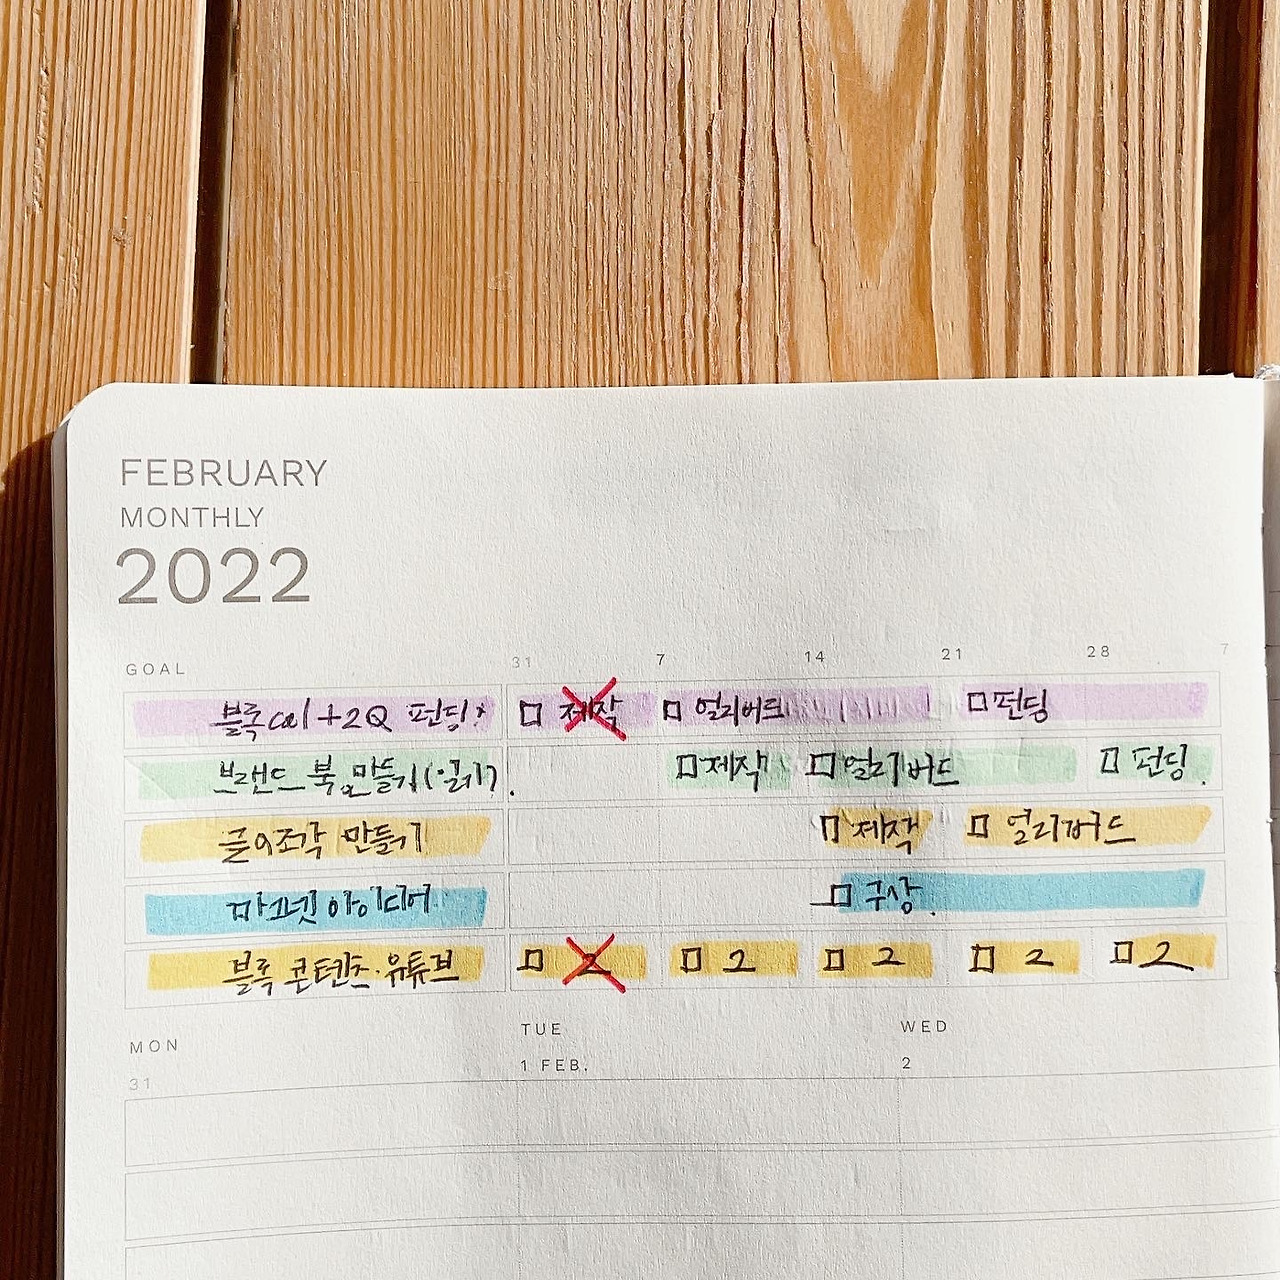 FEBRUARY
MONTHLY
2022
GOAL 31 7 14 21 28 7
블록cal+2Q 펀딩 □ 제작 □ 얼리버드 □ 펀딩
브랜드 북 만들기 □ 제작 □ 얼리버드 □ 펀딩.
글의조각 만들기 □ 제작 □ 얼리버드
마그넷 아이디어 □ 구상.
블록 콘텐츠·유튜브 □ 2 □ 2 □ 2 □ 2 □ 2
MON TUE WED
31 1 FEB. 2